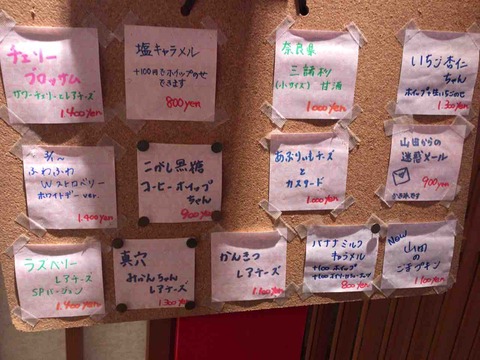 チェリー
ブロッサム
サワーチェリーとレアチーズ
1.400yen
塩キャラメル
+100円でホイップのせ
できます
800yen
奈良県
三諸杉
(小サイズ) 甘酒
1000yen
いちご杏仁
ちゃん
ホイップと生いちごのせ
1.300yen
3/1〜
ふわふわ
Wストロベリー
ホワイトデー ver.
1.400yen
こがし黒糖
コーヒーホイップ
ちゃん
900yen
あぶりいもチーズ
と
カスタード
1.000yen
山田からの
迷惑メール
900yen
ラズベリー
レアチーズ
SPバージョン
1.400yen
真穴
みかんちゃん
レアチーズ
1.300yen
かんきつ
レアチーズ
1.100yen
バナナミルク
キャラメル
+100 ホイップ
800yen
New
山田
の
ごまプリン
1.100yen